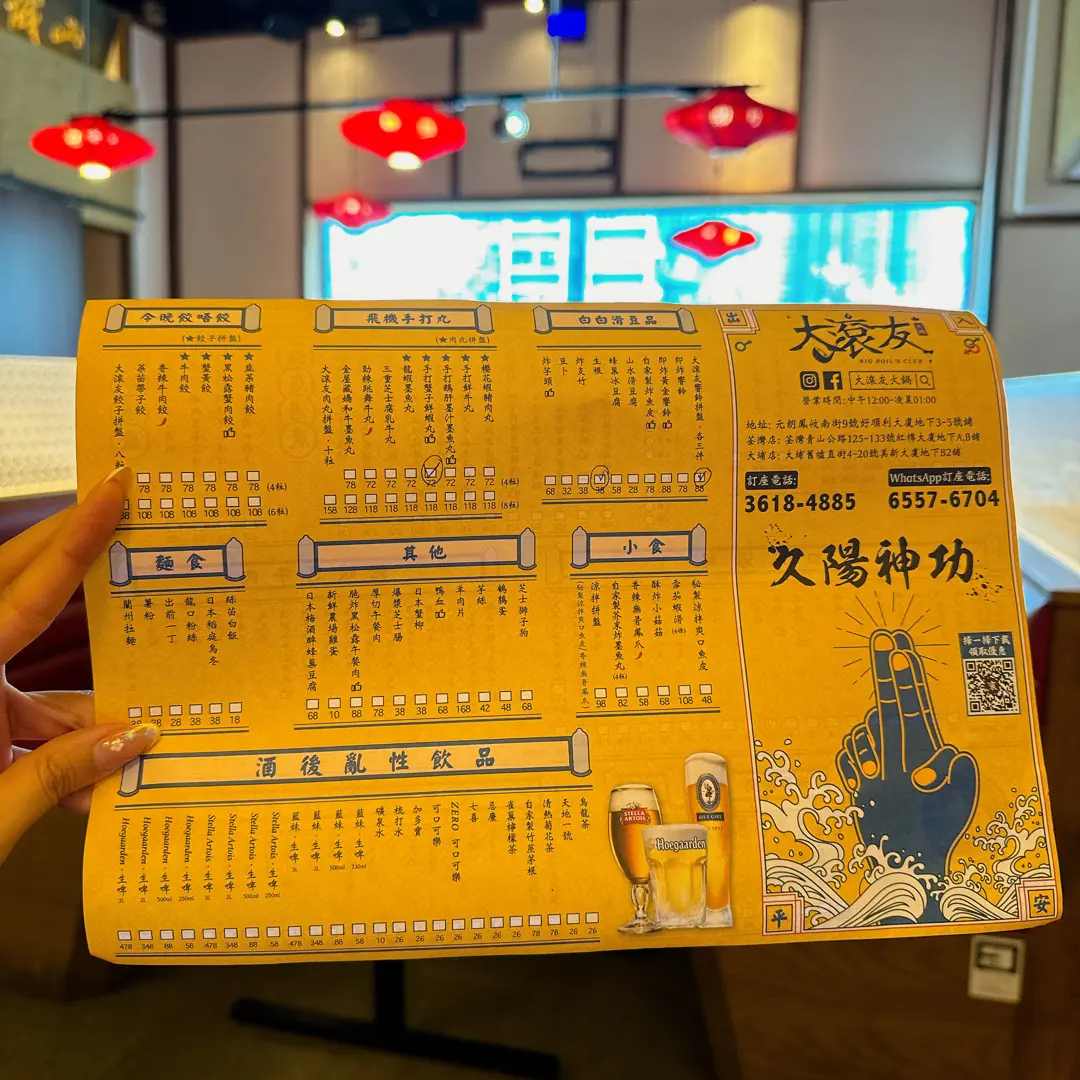 今晚餃唔餃
(★餃子拼盤)
★韮菜豬肉餃
★黑松露蟹肉餃
★蟹黃餃
★牛肉餃
香辣牛肉餃
茶苗帶子餃
大滾友餃子拼盤．八粒
78 78 78 78 78 78 (4粒)
108 108 108 108 108 108 (6粒)
飛機手打丸
(★肉丸拼盤)
★櫻花蝦豬肉丸
★手打鮮牛丸
★手打鵝肝墨汁墨魚丸
★手打蟹子鮮蝦丸
★龍蝦墨魚丸
三重芝士腐乳牛丸
勁辣跳舞牛丸
金屋藏嬌和牛墨魚丸
大滾友肉丸拼盤．十粒
78 72 72 72 72 72 72 (4粒)
158 128 118 118 118 118 118 118 118 (8粒)
白白滑豆品
大滾友響鈴拼盤．各三件
即炸響鈴
即炸黃金響鈴
自家製炸魚皮
山水滑豆腐
蜂巢冰豆腐
生根
炸支竹
豆卜
炸芋頭
68 32 38 38 58 28 78 88 78 88
麵食
絲苗白飯
日本稻庭烏冬
龍口粉絲
出前一丁
薯粉
蘭州拉麵
38 28 28 38 38 18
其他
芝士獅子狗
鵪鶉蛋
芋絲
羊肉片
鴨血
日本蟹柳
爆漿芝士腸
厚切午餐肉
脆炸黑松露午餐肉
新鮮農場雞蛋
日本梅酒醉蜂巢豆腐
68 10 88 78 38 38 68 168 42 48 68
小食
秘製涼拌爽口魚皮
雪茄蝦滑(4條)
酥炸小菇菇
香辣無骨鳳爪
自家製芥末炸墨魚丸(4粒)
涼拌拼盤
(秘製涼拌爽口魚皮/香辣無骨鳳爪)
98 82 58 68 108 48
酒後亂性飲品
烏龍茶
天地一號
清熱菊花茶
自家製竹蔗茅根
雀巢檸檬茶
忌廉
七喜
ZERO 可口可樂
可口可樂
加多寶
桃打水
礦泉水
藍妹竹生啤 330ml
藍妹．生啤 500ml
藍妹．生啤 2L
藍妹．生啤 3L
Stella Artois．生啤 250ml
Stella Artois．生啤 500ml
Stella Artois．生啤 2L
Stella Artois．生啤 3L
Hoegaarden．生啤 250ml
Hoegaarden．生啤 500ml
Hoegaarden．生啤 2L
Hoegaarden．生啤 3L
478 348 88 58 478 348 88 58 478 348 88 58 10 26 26 26 26 26 26 26 26 78 78 26 26 26
STELLA ARTOIS
Hoegaarden
BLUE GIRL
出
入
大滾友
BIG BOIL'S CLUB
大滾友火鍋
營業時間:中午12:00-凌晨01:00
地址: 元朗鳳攸南街9號好順利大廈地下3-5號鋪
荃灣店: 荃灣青山公路125-133號紅棉大廈地下A,B鋪
大埔店: 大埔舊墟直街4-20號美新大廈地下B2鋪
訂座電話:
3618-4885
WhatsApp訂座電話:
6557-6704
久陽神功
掃一掃下載
領取優惠
平
安